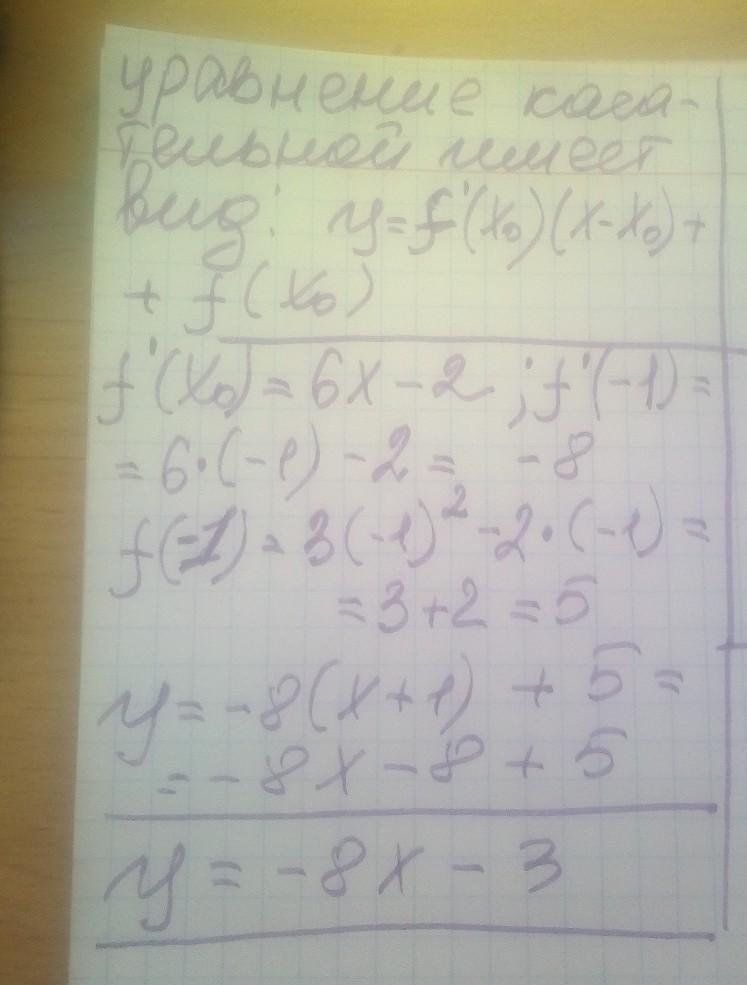 уравнение каса-
тельной имеет
вид: y=f'(x₀)(x-x₀)+
+ f(x₀)
f'(x₀)=6x-2; f'(-1)=
=6·(-1)-2= -8
f(-1)=3(-1)²-2·(-1)=
=3+2=5
y=-8(x+1)+5=
=-8x-8+5
y=-8x-3